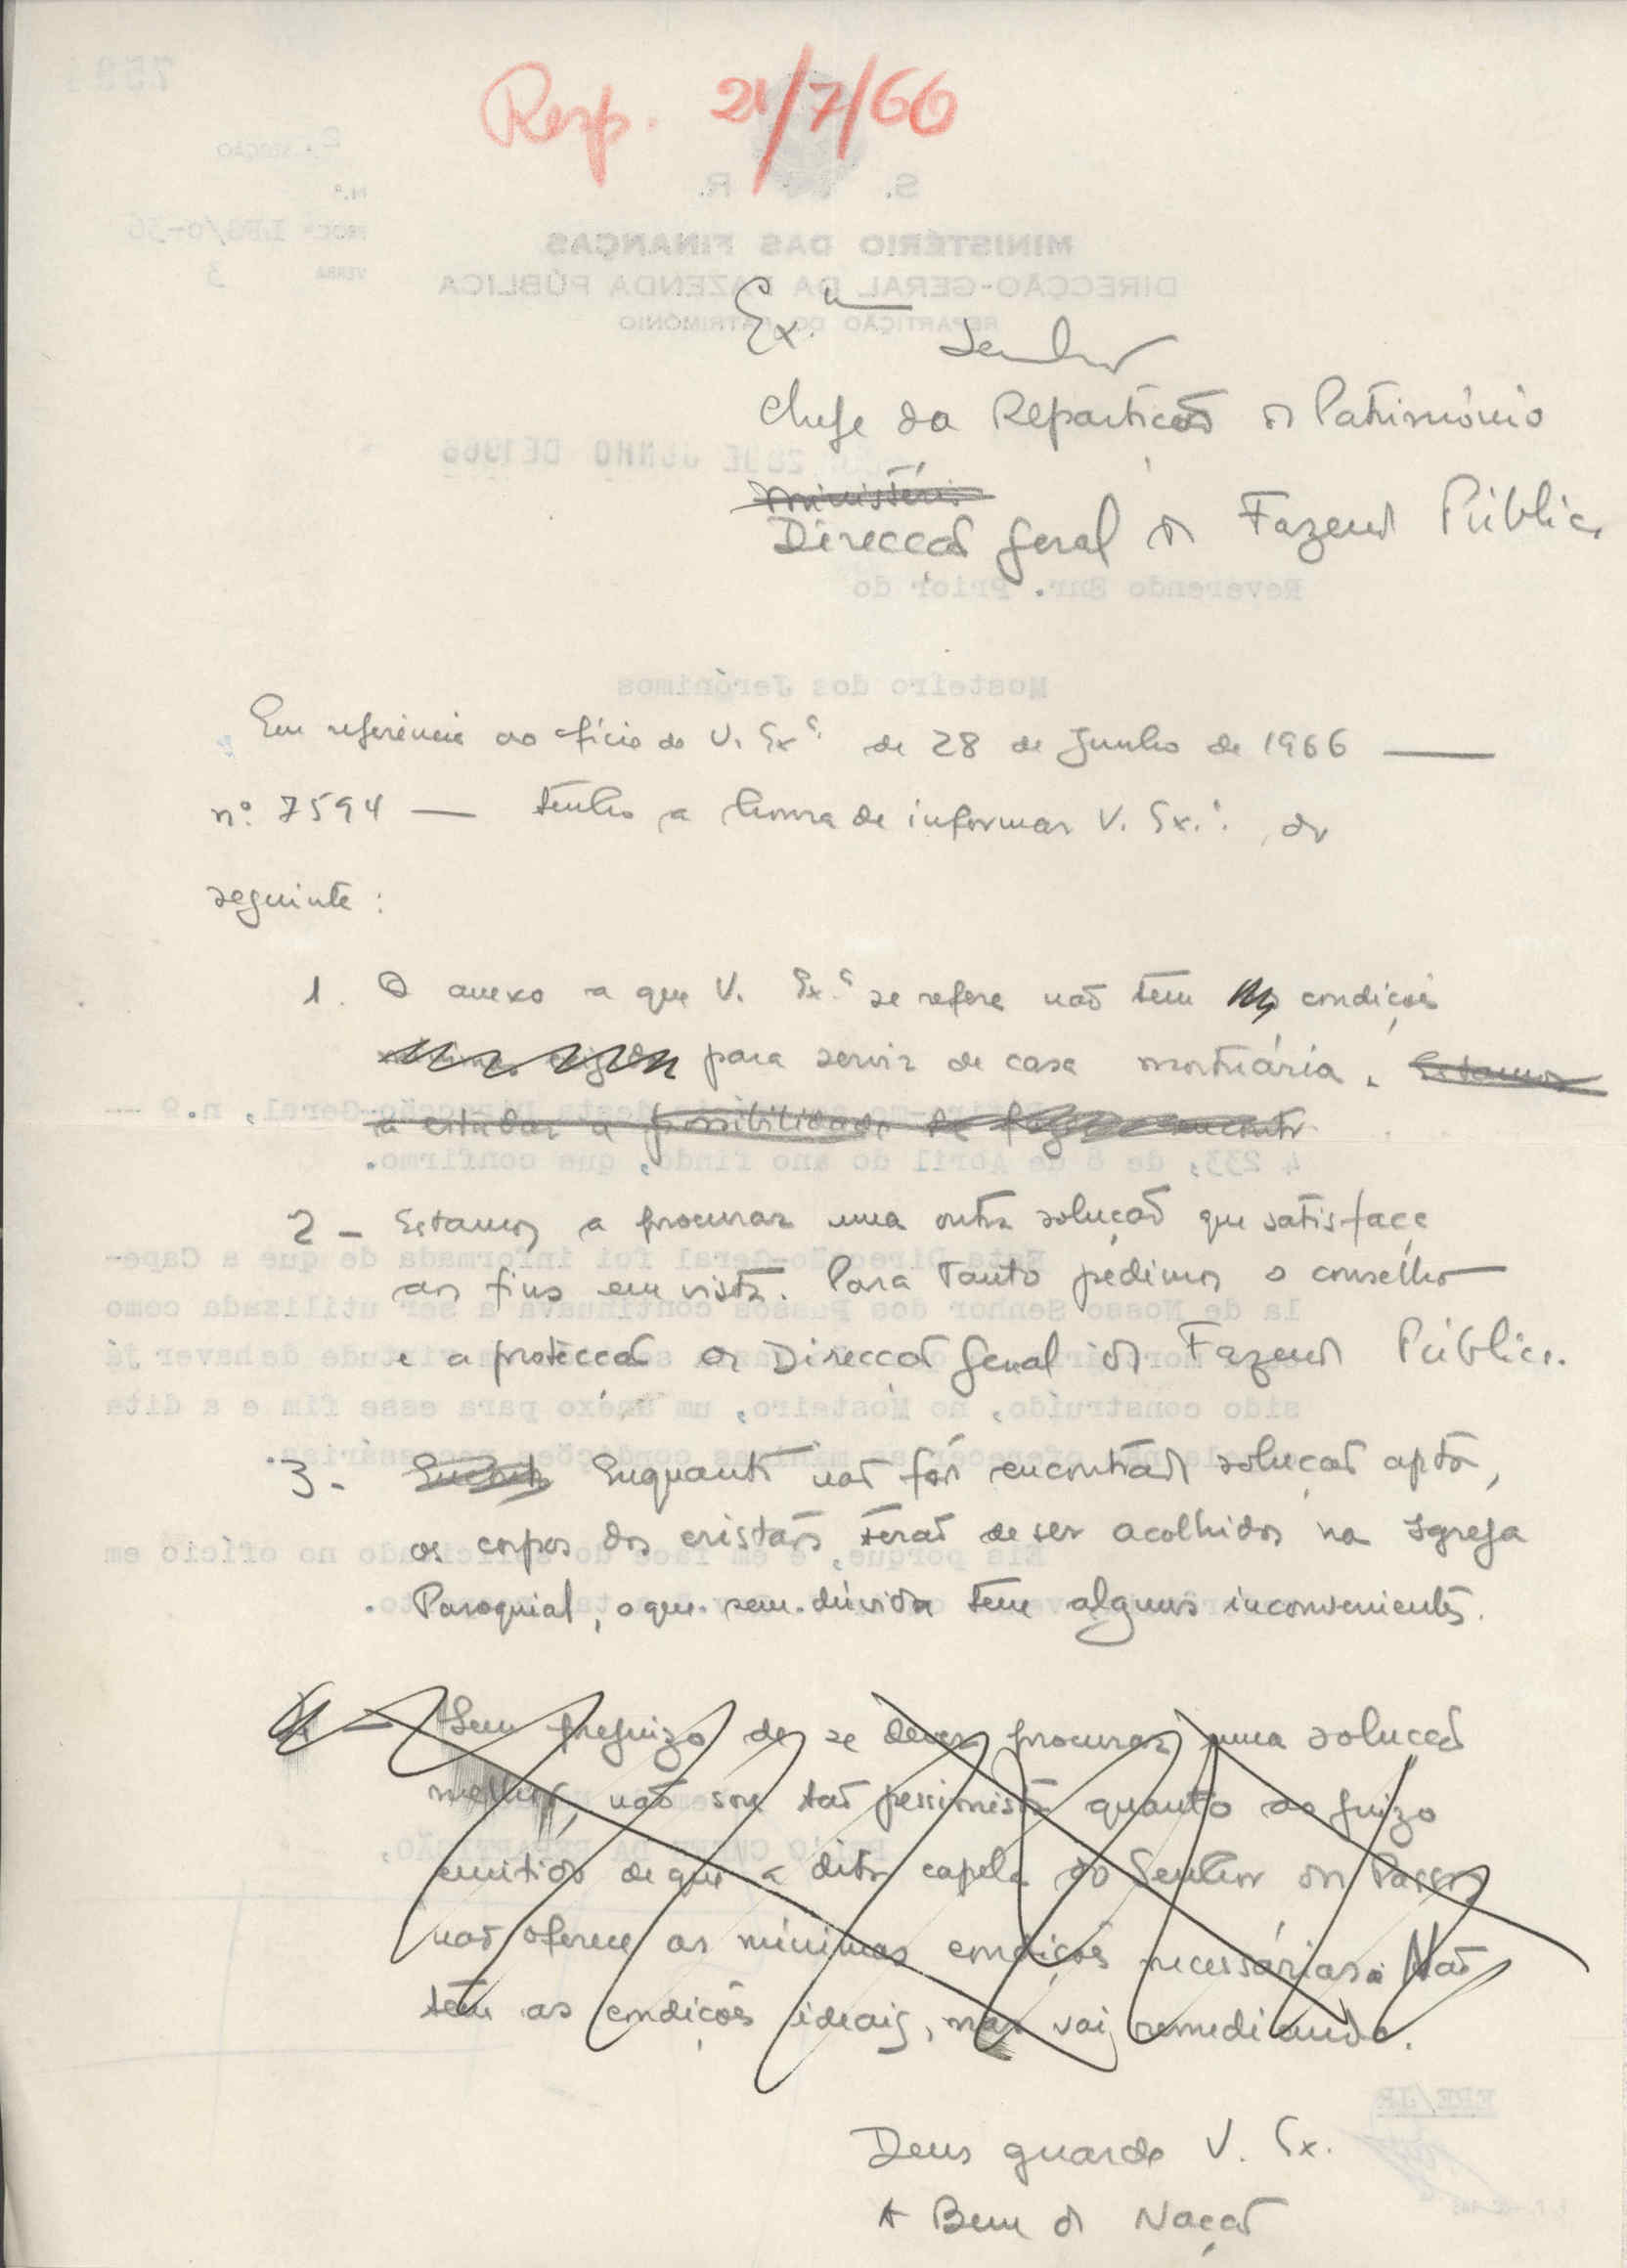 Resp. 21/7/66
Ex.mo Senhor
Chefe da Repartição do Património
Ministério
Direcção Geral da Fazenda Pública
Em referência ao ofício de V. Ex.ª de 28 de Junho de 1966 —
n.º 7594 — tenho a honra de informar V. Ex.ª do
seguinte:
1. O anexo a que V. Ex.ª se refere não tem condições
para servir de casa mortuária. Estamos
a estudar a possibilidade de
2 - Estamos a procurar uma outra solução que satisfaça
aos fins em vista. Para tanto pedimos o conselho
e a protecção da Direcção Geral da Fazenda Pública.
3 - Enquanto não fôr encontrada solução apta,
os corpos dos cristãos terão de ser acolhidos na Igreja
Paroquial, o que sem dúvida tem alguns inconvenientes.
4 - Sem prejuízo de se dever procurar uma solução
melhor, não sou tão pessimista quanto ao juízo
emitido de que a dita capela do Senhor dos Passos
não oferece as mínimas condições necessárias. Não
tem as condições ideais, mas vai remediando.
Deus guarde V. Ex.
A Bem da Nação